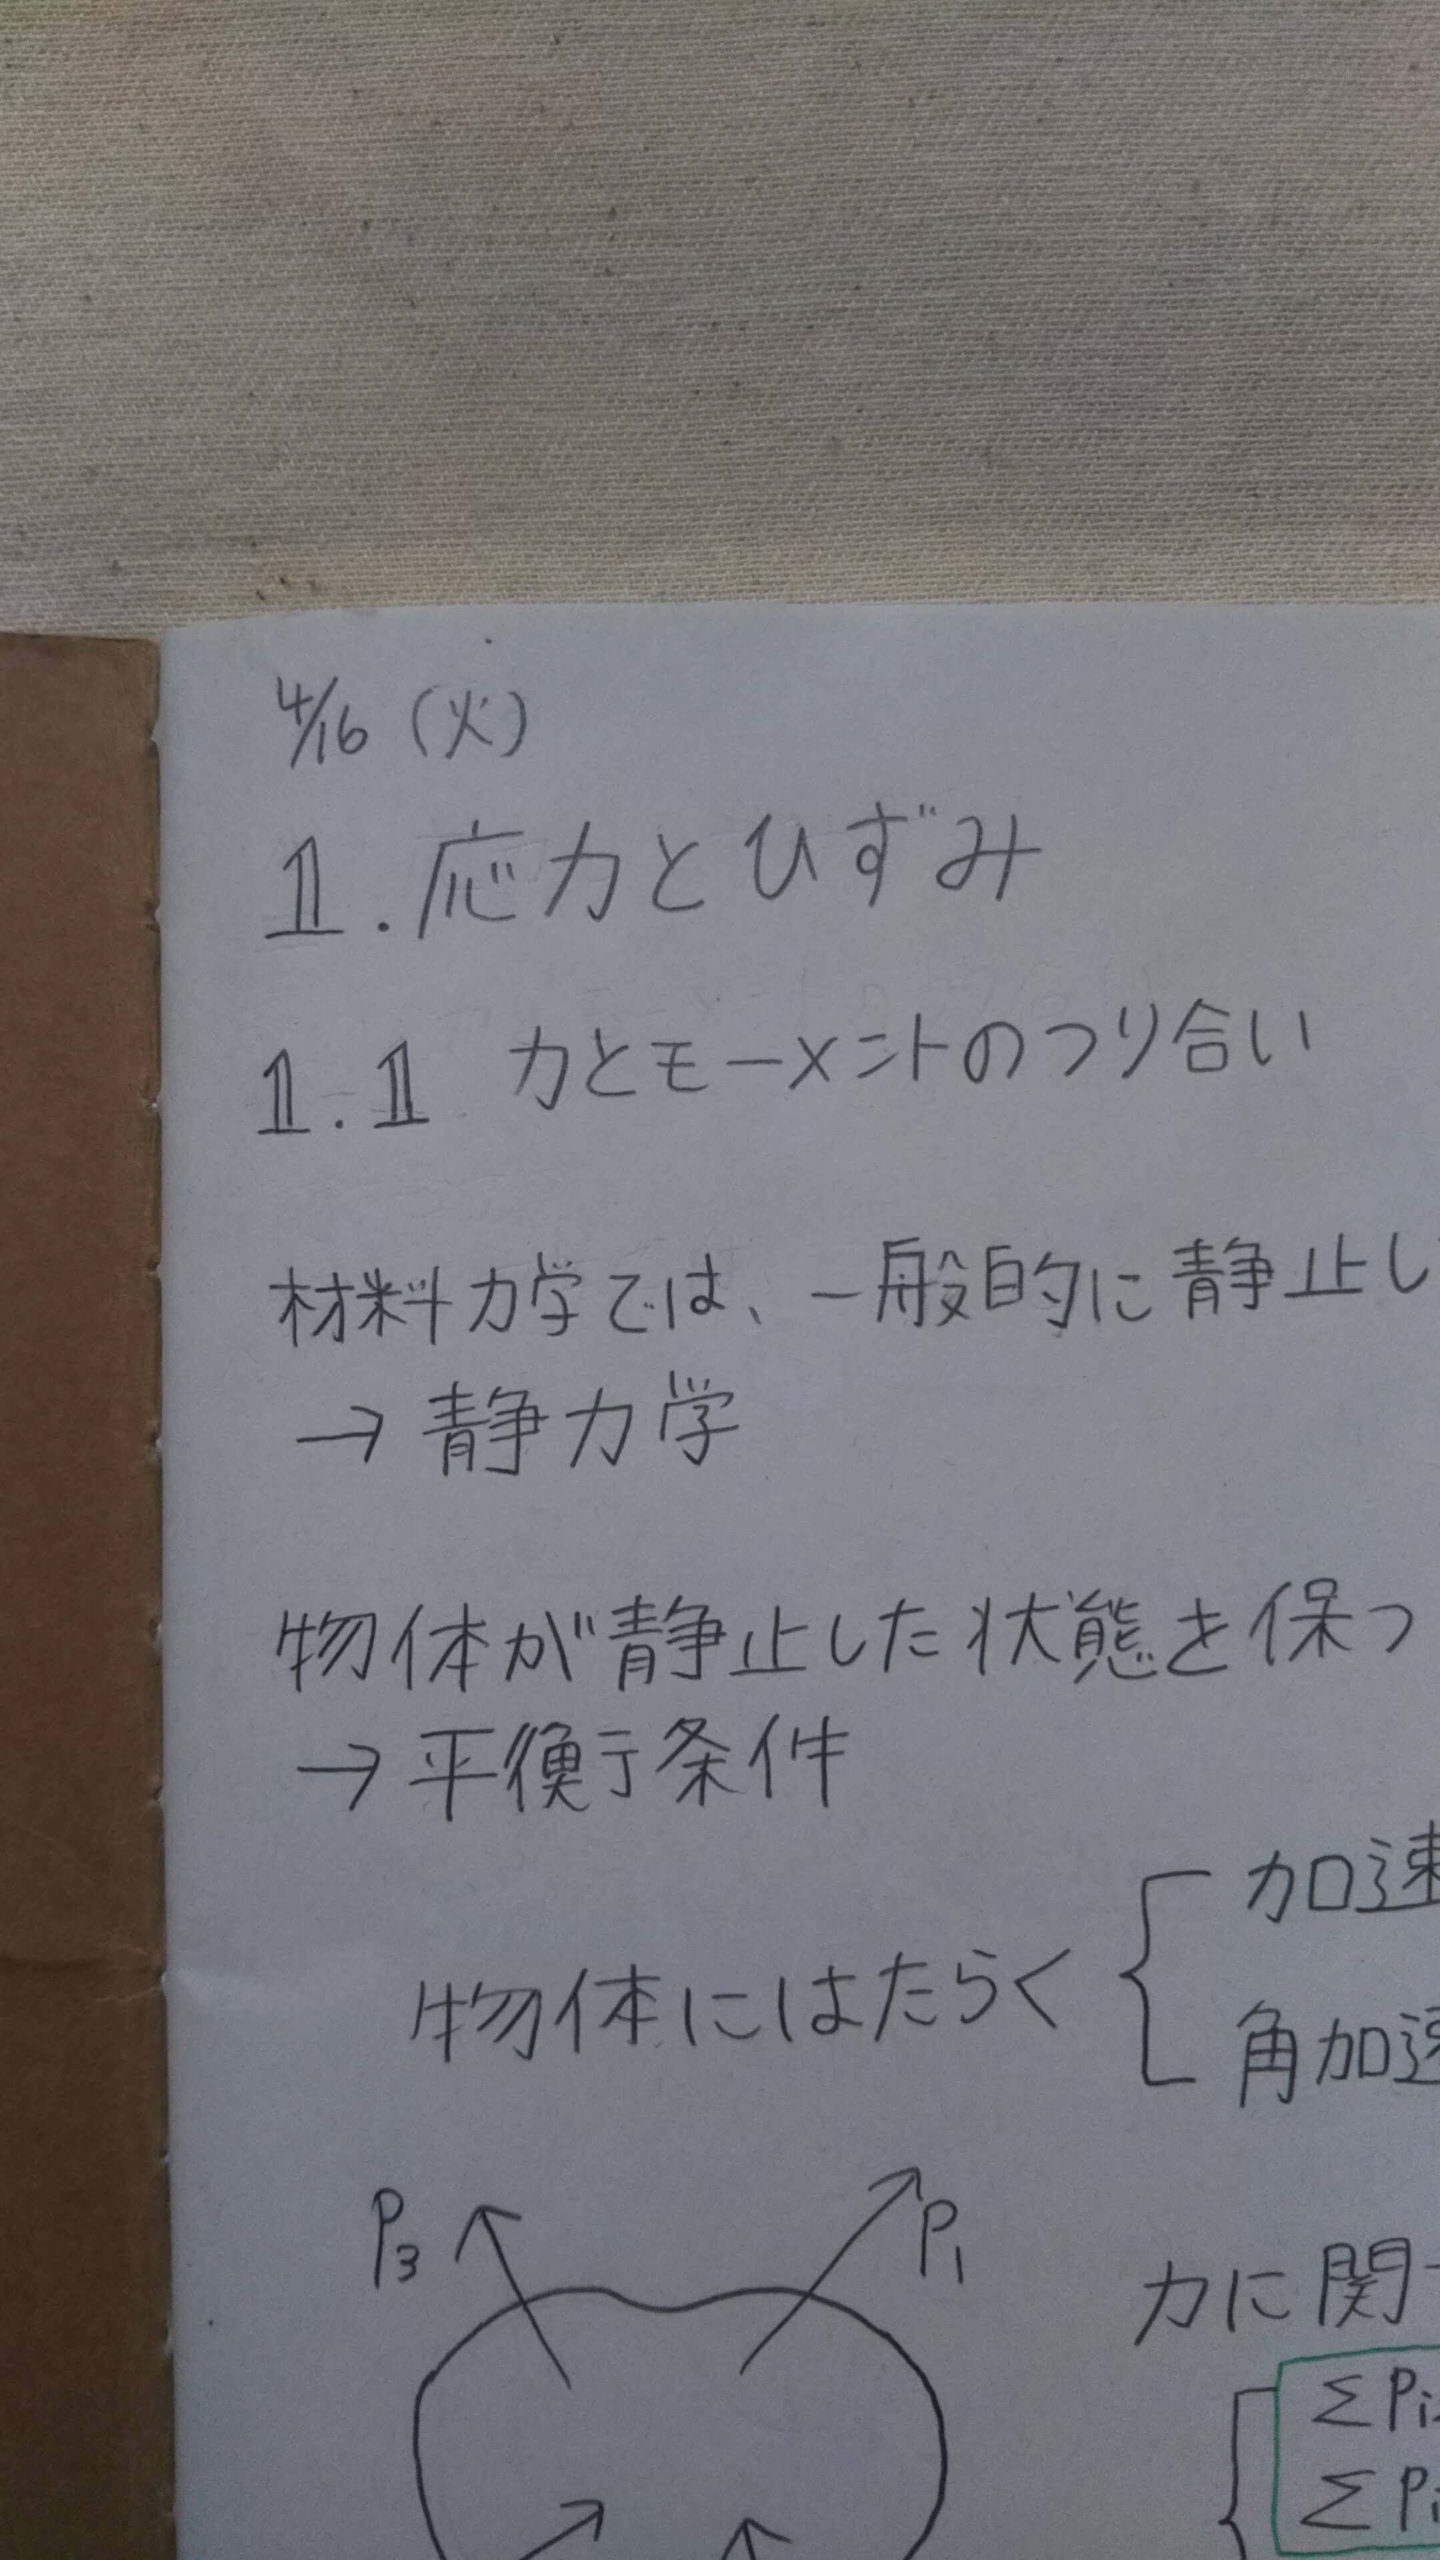 4/16 (火)
1. 応力とひずみ
1.1 力とモーメントのつり合い
材料力学では、一般的に静止し
→ 静力学
物体が静止した状態を保つ
→ 平衡条件
加速
物体にはたらく
角加速
P3
P1
力に関
ΣPi
ΣPi